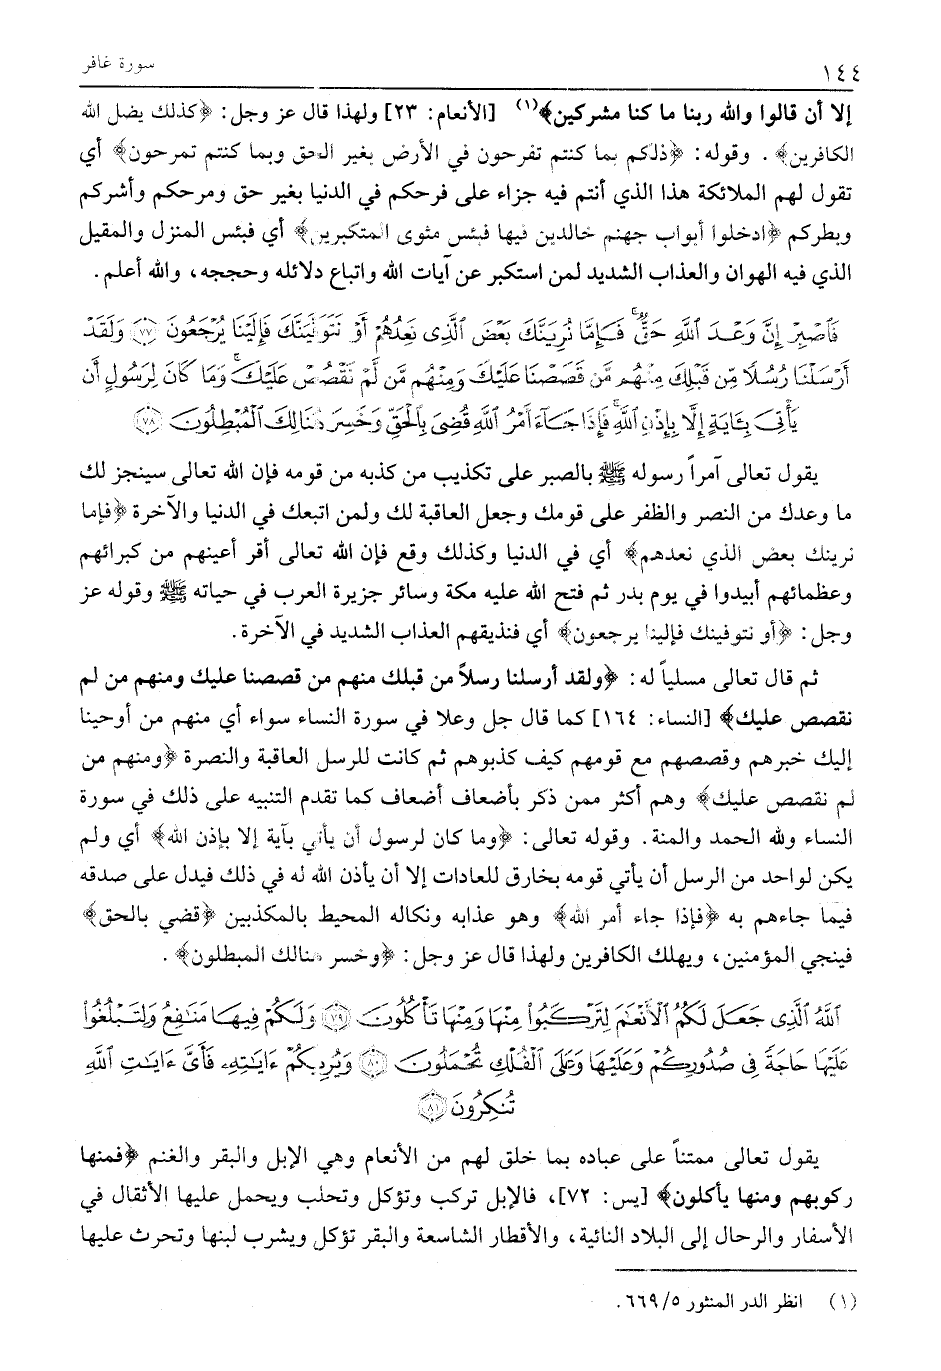 ١٤٤
سورة غافر
إلا أن قالوا والله ربنا ما كنا مشركين﴾(١) [الأنعام: ٢٣] ولهذا قال عز وجل: ﴿كذلك يضل الله
الكافرين﴾. وقوله: ﴿ذلكم بما كنتم تفرحون في الأرض بغير الحق وبما كنتم تمرحون﴾ أي
تقول لهم الملائكة هذا الذي أنتم فيه جزاء على فرحكم في الدنيا بغير حق ومرحكم وأشركم
وبطركم ﴿ادخلوا أبواب جهنم خالدين فيها فبئس مثوى المتكبرين﴾ أي فبئس المنزل والمقيل
الذي فيه الهوان والعذاب الشديد لمن استكبر عن آيات الله واتباع دلائله وحججه، والله أعلم.
فَٱصْبِرْ إِنَّ وَعْدَ ٱللَّهِ حَقٌّۚ فَإِمَّا نُرِيَنَّكَ بَعْضَ ٱلَّذِى نَعِدُهُمْ أَوْ نَتَوَفَّيَنَّكَ فَإِلَيْنَا يُرْجَعُونَ ﴿٧٧﴾ وَلَقَدْ
أَرْسَلْنَا رُسُلًا مِّن قَبْلِكَ مِنْهُم مَّن قَصَصْنَا عَلَيْكَ وَمِنْهُم مَّن لَّمْ نَقْصُصْ عَلَيْكَۗ وَمَا كَانَ لِرَسُولٍ أَن
يَأْتِىَ بِـَٔايَةٍ إِلَّا بِإِذْنِ ٱللَّهِۚ فَإِذَا جَآءَ أَمْرُ ٱللَّهِ قُضِىَ بِٱلْحَقِّ وَخَسِرَ هُنَالِكَ ٱلْمُبْطِلُونَ ﴿٧٨﴾
يقول تعالى آمراً رسوله ﷺ بالصبر على تكذيب من كذبه من قومه فإن الله تعالى سينجز لك
ما وعدك من النصر والظفر على قومك وجعل العاقبة لك ولمن اتبعك في الدنيا والآخرة ﴿فإما
نرينك بعض الذي نعدهم﴾ أي في الدنيا وكذلك وقع فإن الله تعالى أقر أعينهم من كبرائهم
وعظمائهم أبيدوا في يوم بدر ثم فتح الله عليه مكة وسائر جزيرة العرب في حياته ﷺ وقوله عز
وجل: ﴿أو نتوفينك فإلينا يرجعون﴾ أي فنذيقهم العذاب الشديد في الآخرة.
ثم قال تعالى مسلياً له: ﴿ولقد أرسلنا رسلاً من قبلك منهم من قصصنا عليك ومنهم من لم
نقصص عليك﴾ [النساء: ١٦٤] كما قال جل وعلا في سورة النساء سواء أي منهم من أوحينا
إليك خبرهم وقصصهم مع قومهم كيف كذبوهم ثم كانت للرسل العاقبة والنصرة ﴿ومنهم من
لم نقصص عليك﴾ وهم أكثر ممن ذكر بأضعاف أضعاف كما تقدم التنبيه على ذلك في سورة
النساء ولله الحمد والمنة. وقوله تعالى: ﴿وما كان لرسول أن يأتي بآية إلا بإذن الله﴾ أي ولم
يكن لواحد من الرسل أن يأتي قومه بخارق للعادات إلا أن يأذن الله له في ذلك فيدل على صدقه
فيما جاءهم به ﴿فإذا جاء أمر الله﴾ وهو عذابه ونكاله المحيط بالمكذبين ﴿قضي بالحق﴾
فينجي المؤمنين، ويهلك الكافرين ولهذا قال عز وجل: ﴿وخسر هنالك المبطلون﴾.
ٱللَّهُ ٱلَّذِى جَعَلَ لَكُمُ ٱلْأَنْعَٰمَ لِتَرْكَبُوا۟ مِنْهَا وَمِنْهَا تَأْكُلُونَ ﴿٧٩﴾ وَلَكُمْ فِيهَا مَنَٰفِعُ وَلِتَبْلُغُوا۟
عَلَيْهَا حَاجَةً فِى صُدُورِكُمْ وَعَلَيْهَا وَعَلَى ٱلْفُلْكِ تُحْمَلُونَ ﴿٨٠﴾ وَيُرِيكُمْ ءَايَٰتِهِۦ فَأَىَّ ءَايَٰتِ ٱللَّهِ
تُنكِرُونَ ﴿٨١﴾
يقول تعالى ممتناً على عباده بما خلق لهم من الأنعام وهي الإبل والبقر والغنم ﴿فمنها
ركوبهم ومنها يأكلون﴾ [يس: ٧٢]، فالإبل تركب وتؤكل وتحلب ويحمل عليها الأثقال في
الأسفار والرحال إلى البلاد النائية، والأقطار الشاسعة والبقر تؤكل ويشرب لبنها وتحرث عليها
(١) انظر الدر المنثور ٥/ ٦٦٩.